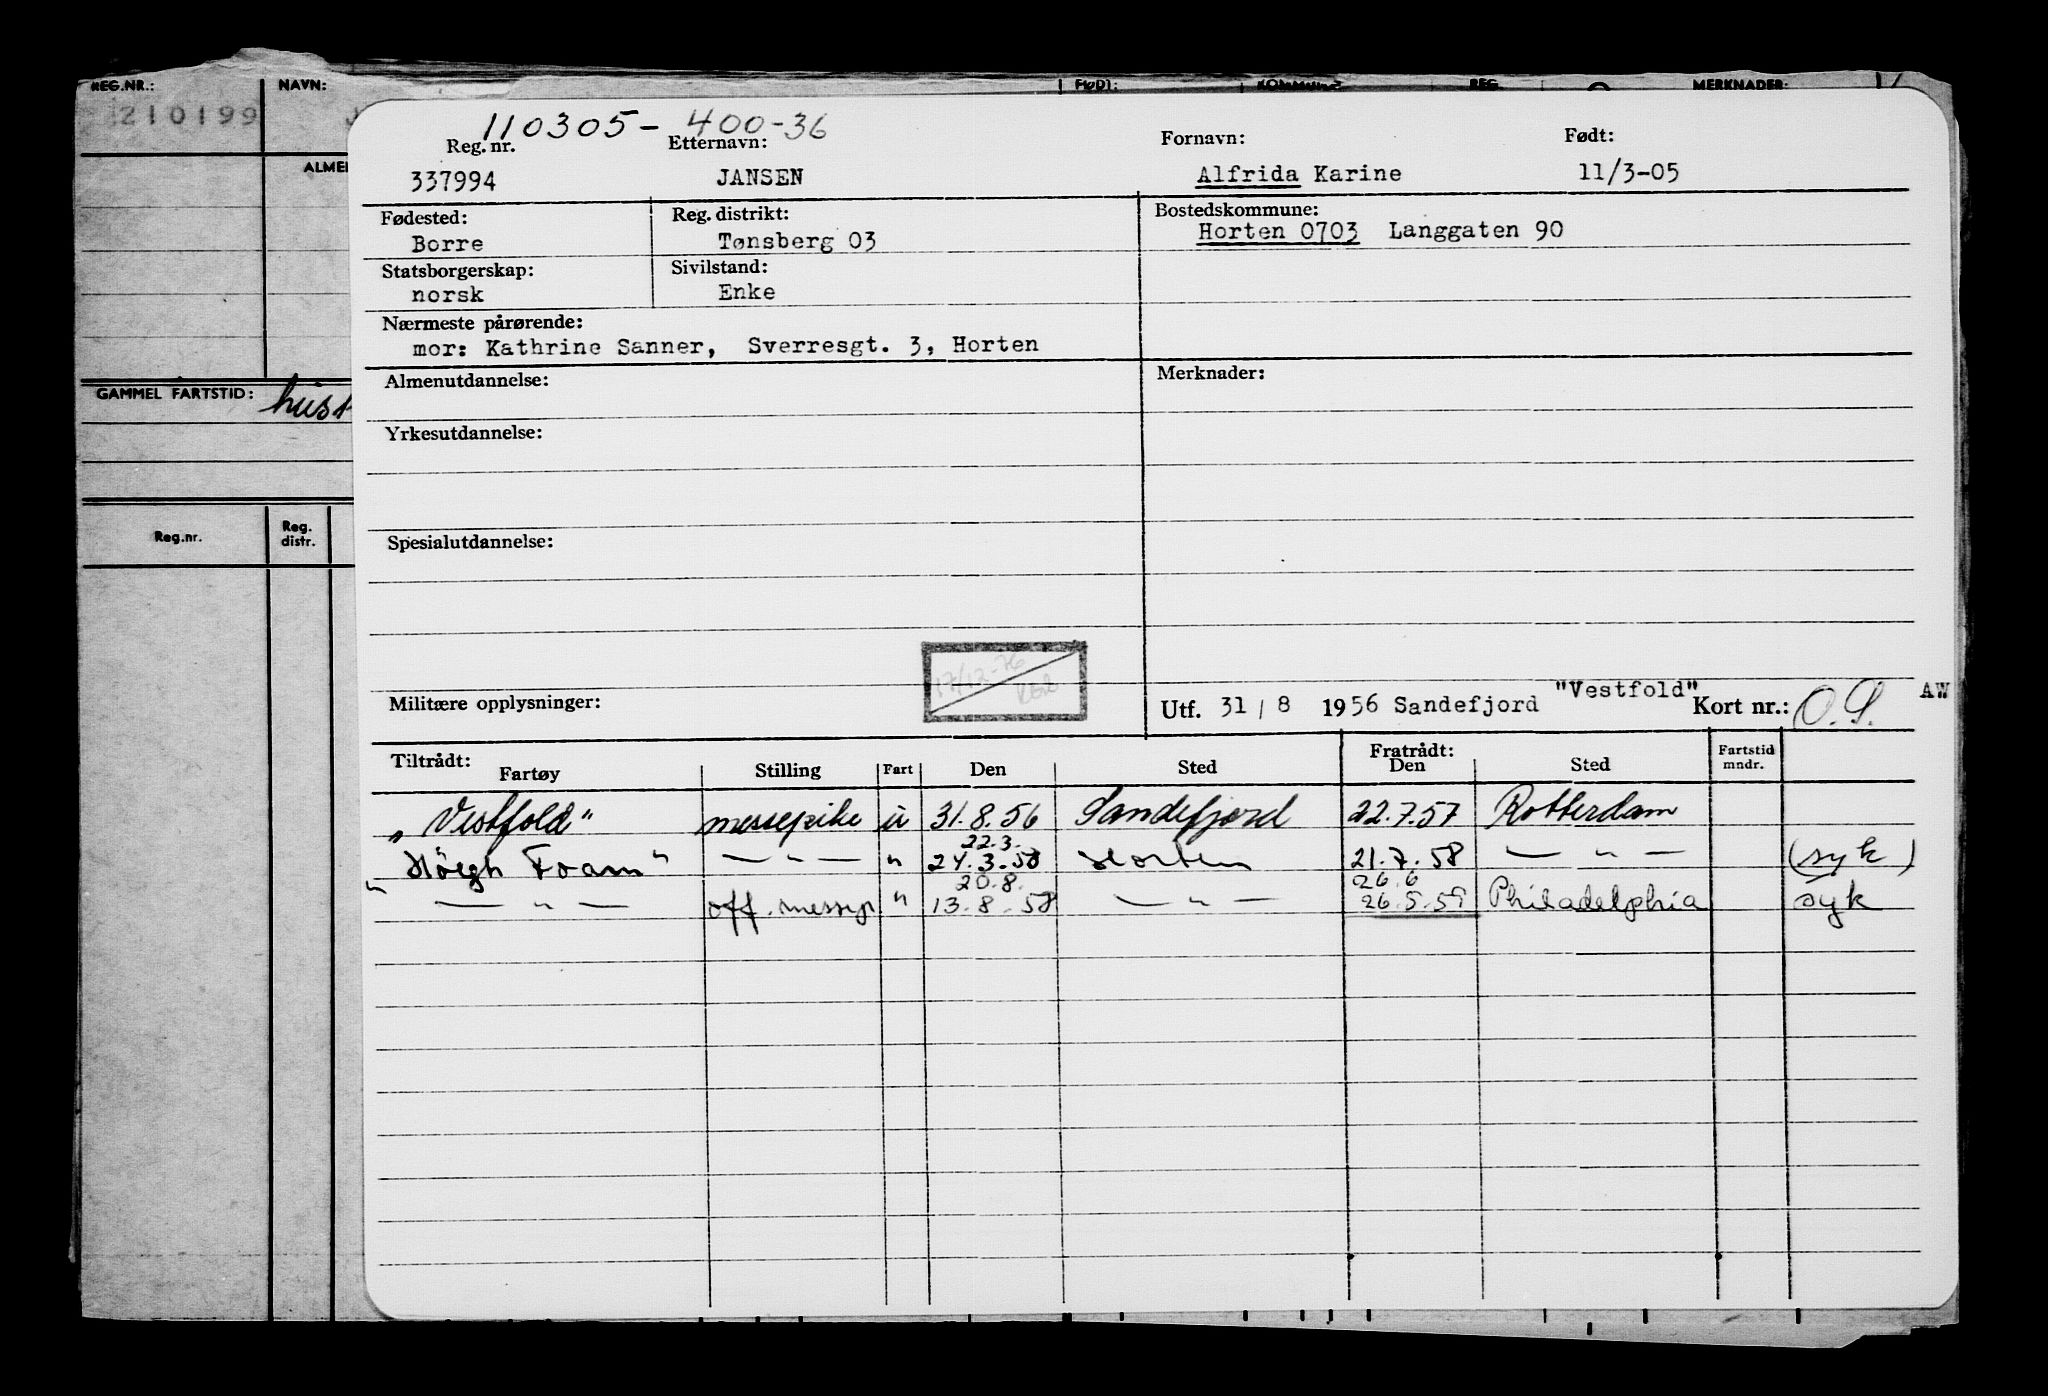 REG.NR.: NAVN: FØDT: KOMMUNE REG. MERKNADER:
210199 J
ALME
GAMMEL FARTSTID:
Reg.nr. Reg. distr.
110305- 400-36
Reg. nr. Etternavn: Fornavn: Født:
337994 JANSEN Alfrida Karine 11/3-05
Fødested: Reg. distrikt: Bostedskommune:
Borre Tønsberg 03 Horten 0703 Langgaten 90
Statsborgerskap: Sivilstand:
norsk Enke
Nærmeste pårørende:
mor: Kathrine Sanner, Sverresgt. 3, Horten
Almenutdannelse: Merknader:
Yrkesutdannelse:
Spesialutdannelse:
17/12-76
Militære opplysninger: Utf. 31/8 1956 Sandefjord "Vestfold" Kort nr.: O.S. AW
Tiltrådt: Fratrådt:
Fartøy Stilling Fart Den Sted Den Sted Fartstid mndr.
„Vestfold“ messepike u 31.8.56 Sandefjord 22.7.57 Rotterdam
22.3.
"Höegh Foam" — " — " 24.3.58 Horten 21.7.58 — " — (syk)
20.8. 26.6
" — " — off. messep " 13.8.58 — " — 26.5.59 Philadelphia syk